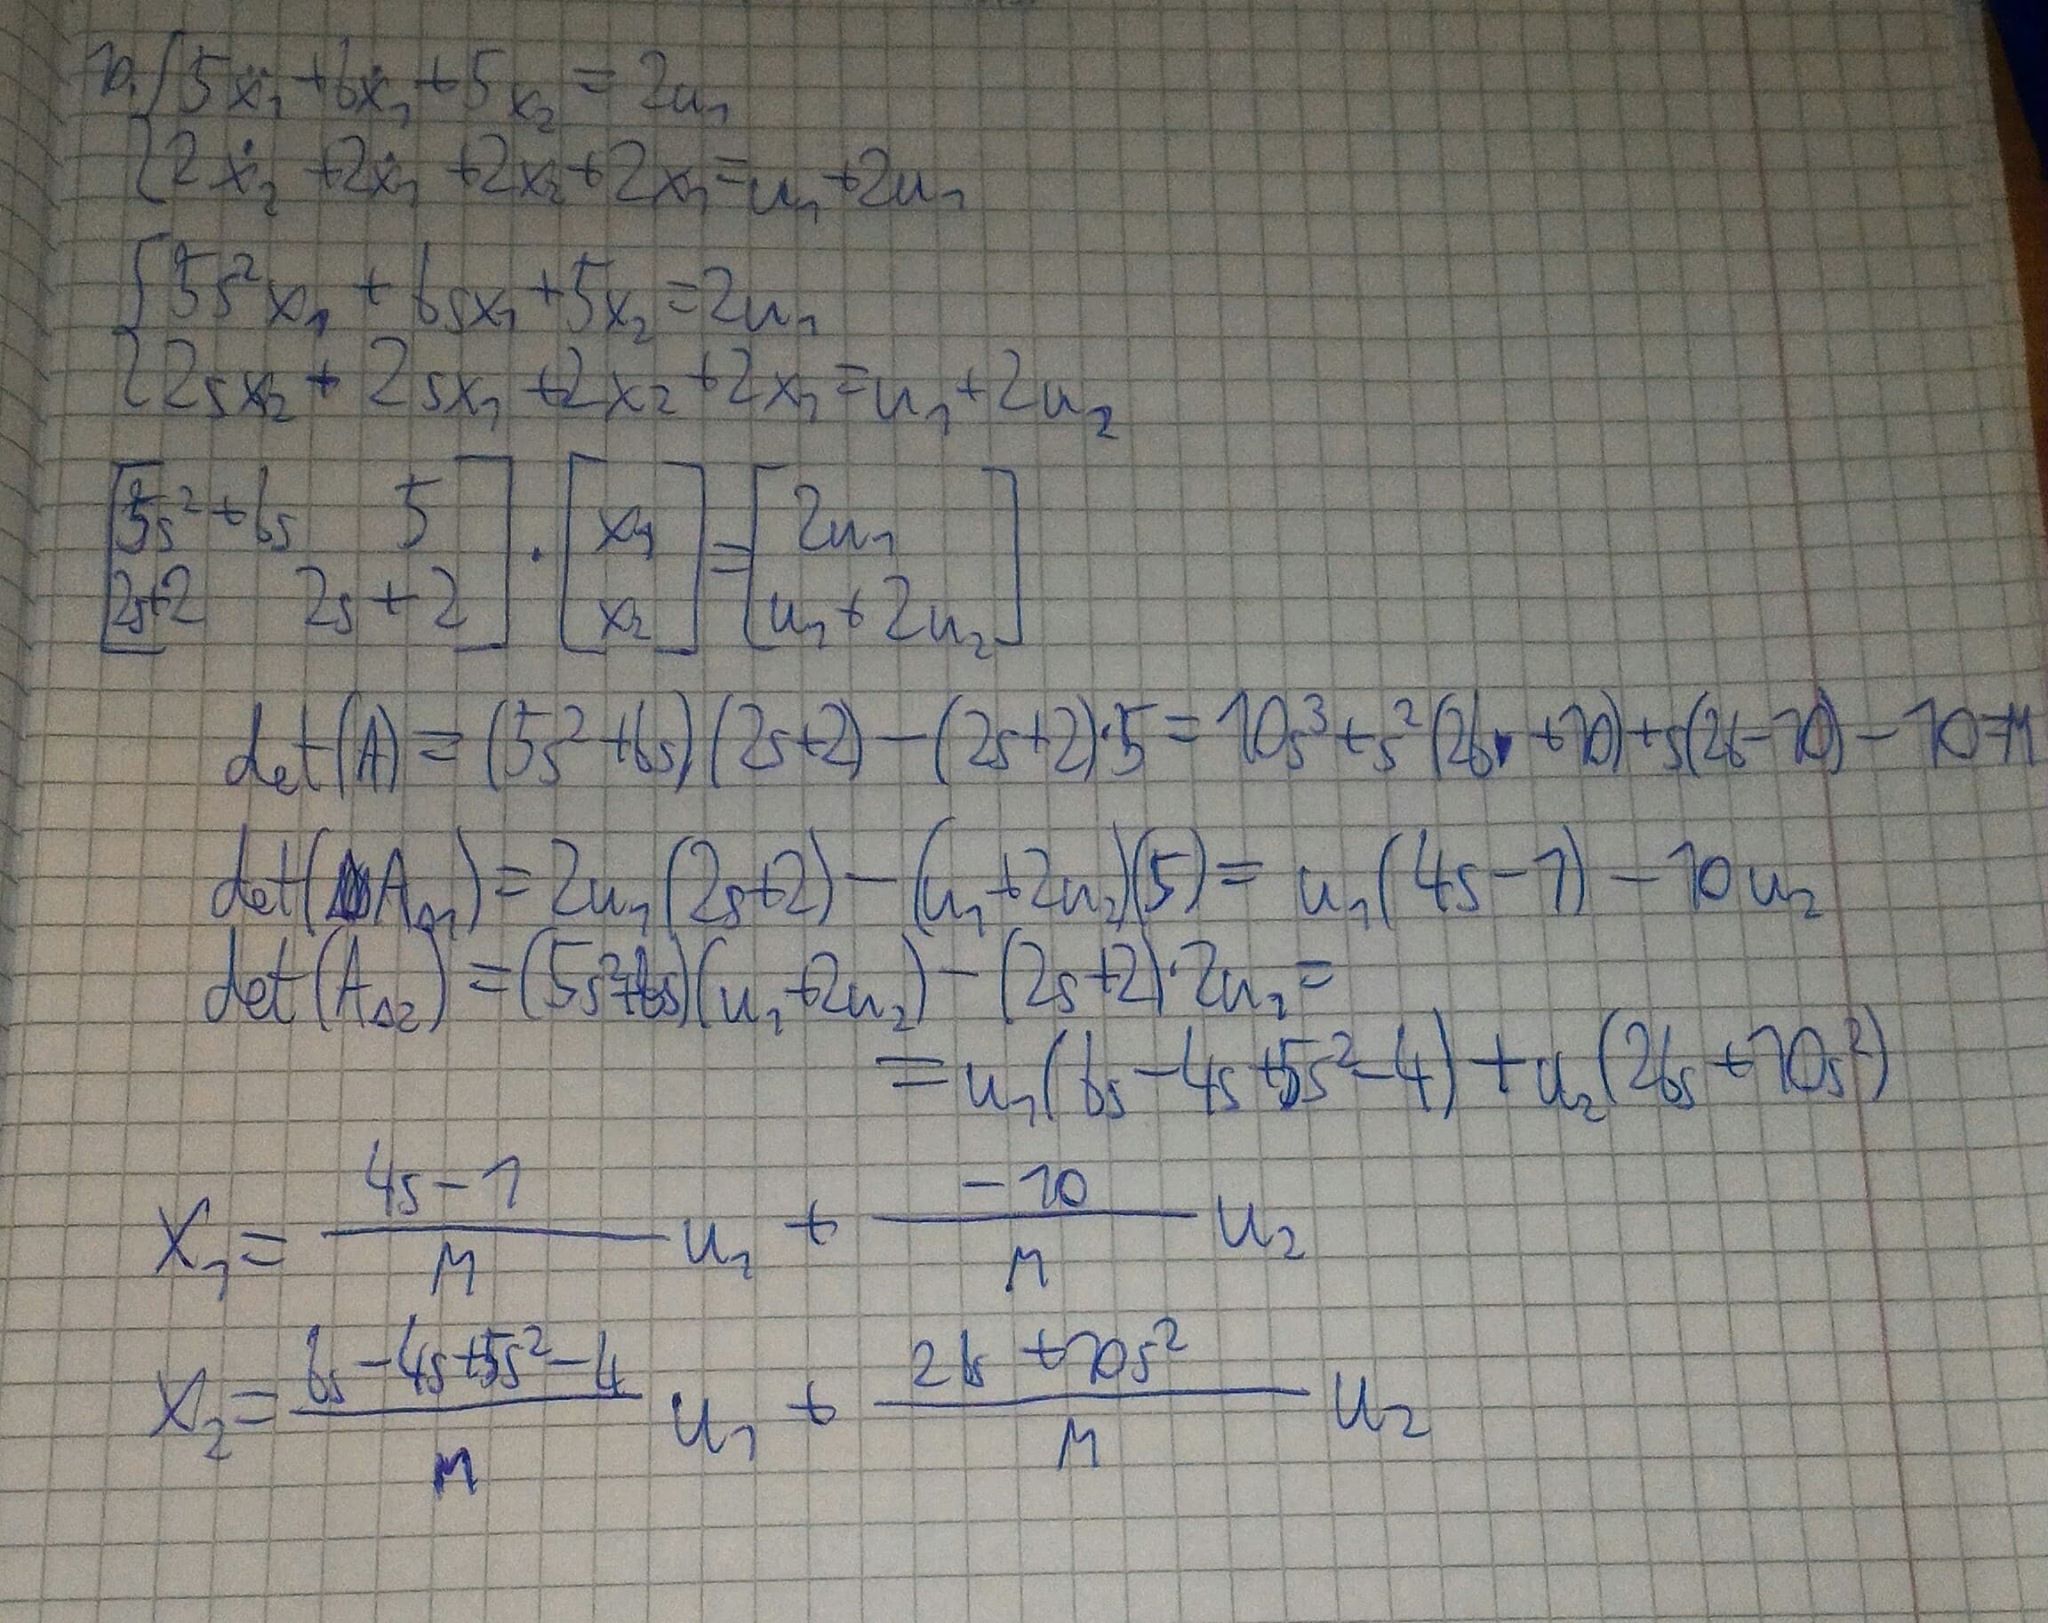 10. { 5ẍ₁ + bẋ₁ + 5x₂ = 2u₁
{ 2ẋ₂ + 2ẋ₁ + 2x₂ + 2x₁ = u₁ + 2u₁
{ 5s²x₁ + bsx₁ + 5x₂ = 2u₁
{ 2sx₂ + 2sx₁ + 2x₂ + 2x₁ = u₁ + 2u₂
[5s²+bs 5] · [x₁] = [2u₁]
[2s+2 2s+2] [x₂] [u₁+2u₂]
det(A) = (5s²+bs)(2s+2) - (2s+2)·5 = 10s³ + s²(2b+10) + s(2b-10) - 10 = M
det(A_Δ1) = 2u₁(2s+2) - (u₁+2u₂)(5) = u₁(4s-1) - 10u₂
det(A_Δ2) = (5s²+bs)(u₁+2u₂) - (2s+2)·2u₁ =
= u₁(bs-4s+5s²-4) + u₂(2bs+10s²)
X₁ = (4s-1)/M u₁ + (-10)/M u₂
X₂ = (bs-4s+5s²-4)/M u₁ + (2bs+10s²)/M u₂